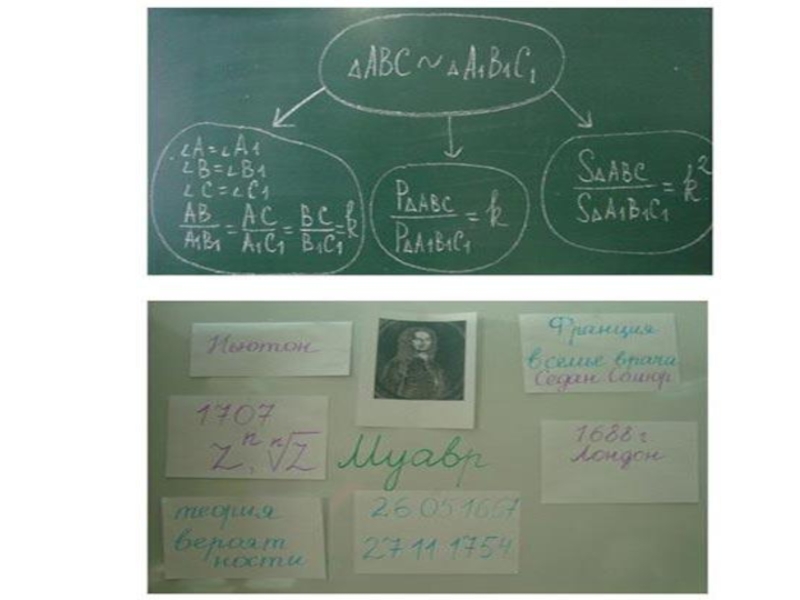 △ABC ~ △A₁B₁C₁
∠A=∠A₁
∠B=∠B₁
∠C=∠C₁
AB/A₁B₁ = AC/A₁C₁ = BC/B₁C₁ = k
P△ABC/P△A₁B₁C₁ = k
S△ABC/S△A₁B₁C₁ = k²
Ньютон
Франция
в семье врача
Седан Сомюр
1707
zⁿ, ⁿ√z
Муавр
1688 г
Лондон
теория
вероят
ности
26 05 1667
27 11 1754